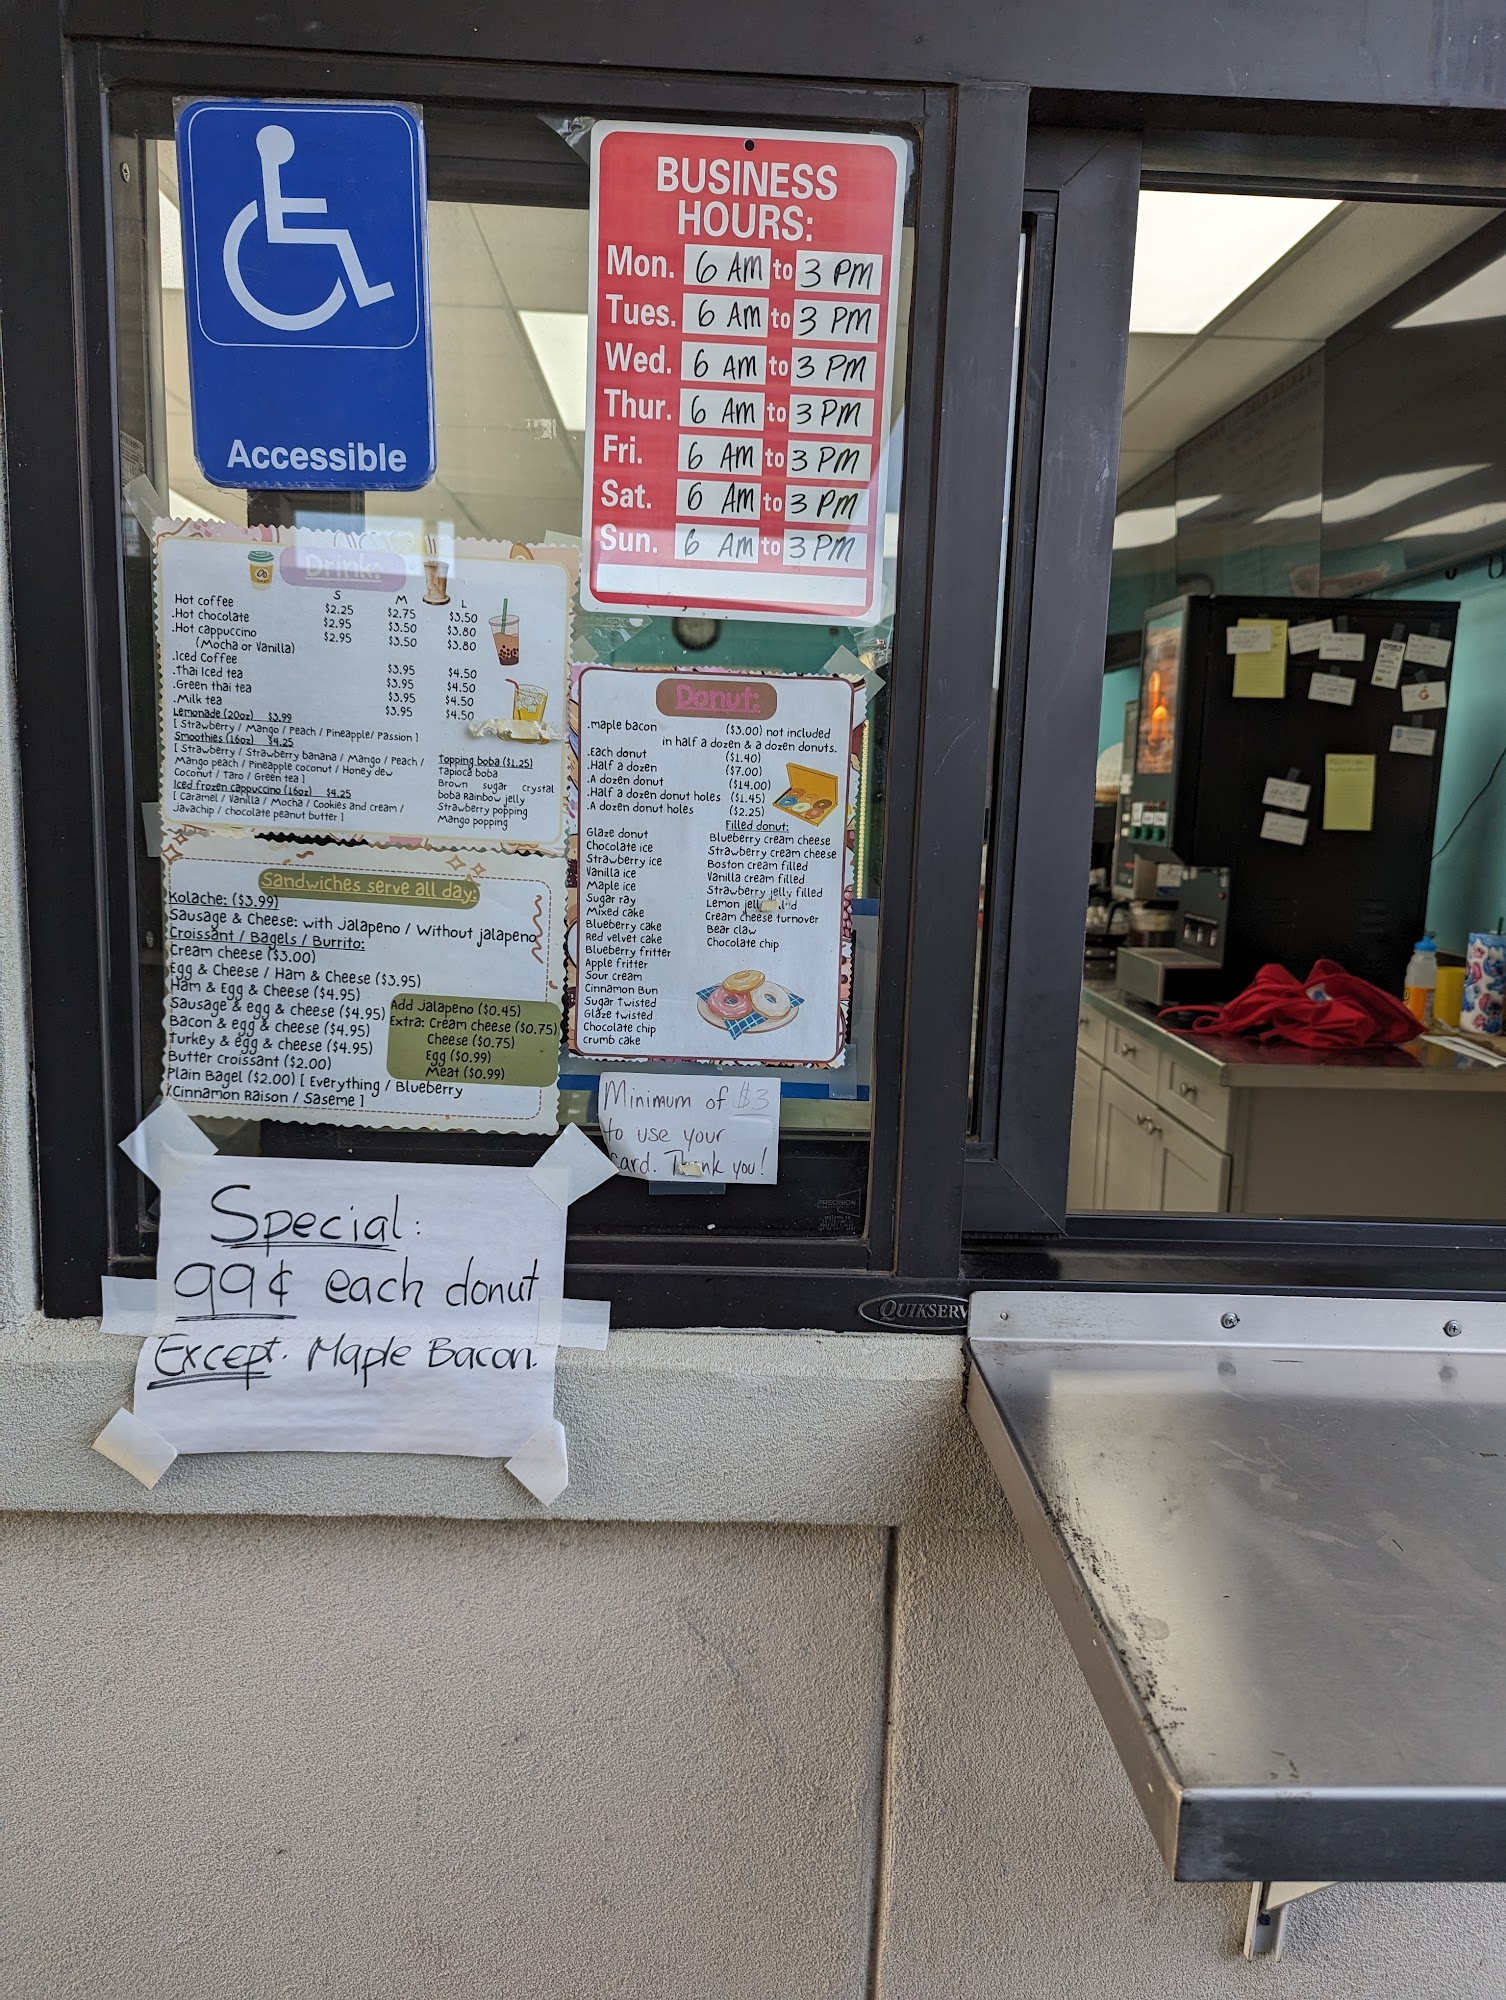 Accessible
BUSINESS
HOURS:
Mon. 6 AM to 3 PM
Tues. 6 AM to 3 PM
Wed. 6 AM to 3 PM
Thur. 6 AM to 3 PM
Fri. 6 AM to 3 PM
Sat. 6 AM to 3 PM
Sun. 6 AM to 3 PM
Drink:
S M L
Hot coffee $2.25 $2.75 $3.50
.Hot chocolate $2.95 $3.50 $3.80
.Hot cappuccino $2.95 $3.50 $3.80
(Mocha or Vanilla)
.Iced Coffee $3.95 $4.50
.Thai Iced tea $3.95 $4.50
.Green thai tea $3.95 $4.50
.Milk tea $3.95 $4.50
Lemonade (20oz) $3.99
[ Strawberry / Mango / Peach / Pineapple/ Passion ]
Smoothies (16oz) $4.25
[ Strawberry / Strawberry banana / Mango / Peach /
Mango peach / Pineapple coconut / Honey dew
Coconut / Taro / Green tea ]
Iced frozen cappuccino (16oz) $4.25
[ Caramel / Vanilla / Mocha / Cookies and cream /
Javachip / chocolate peanut butter ]
Topping boba ($1.25)
Tapioca boba
Brown sugar crystal
boba Rainbow jelly
Strawberry popping
Mango popping
Donut:
.maple bacon ($3.00) not included
in half a dozen & a dozen donuts.
.Each donut ($1.40)
.Half a dozen ($7.00)
.A dozen donut ($14.00)
.Half a dozen donut holes ($1.45)
.A dozen donut holes ($2.25)
Glaze donut
Chocolate ice
Strawberry ice
Vanilla ice
Maple ice
Sugar ray
Mixed cake
Blueberry cake
Red velvet cake
Blueberry fritter
Apple fritter
Sour cream
Cinnamon Bun
Sugar Twisted
Glaze twisted
Chocolate chip
crumb cake
Filled donut:
Blueberry cream cheese
Strawberry cream cheese
Boston cream filled
Vanilla cream filled
Strawberry jelly filled
Lemon
Cream cheese turnover
Bear claw
Chocolate chip
Sandwiches serve all day:
Kolache: ($3.99)
Sausage & Cheese: with jalapeno / Without jalapeno
Croissant / Bagels / Burrito:
Cream cheese ($3.00)
Egg & Cheese / Ham & Cheese ($3.95)
Ham & Egg & Cheese ($4.95)
Sausage & egg & cheese ($4.95)
Bacon & egg & cheese ($4.95)
Turkey & egg & cheese ($4.95)
Butter croissant ($2.00)
Plain Bagel ($2.00) [ Everything / Blueberry
/Cinnamon Raison / Saseme ]
Add Jalapeno ($0.45)
Extra: Cream cheese ($0.75)
Cheese ($0.75)
Egg ($0.99)
Meat ($0.99)
Minimum of $3
to use your
card. Thank you!
Special:
99¢ each donut
Except. Maple Bacon.
PRECISION
QUIKSERV